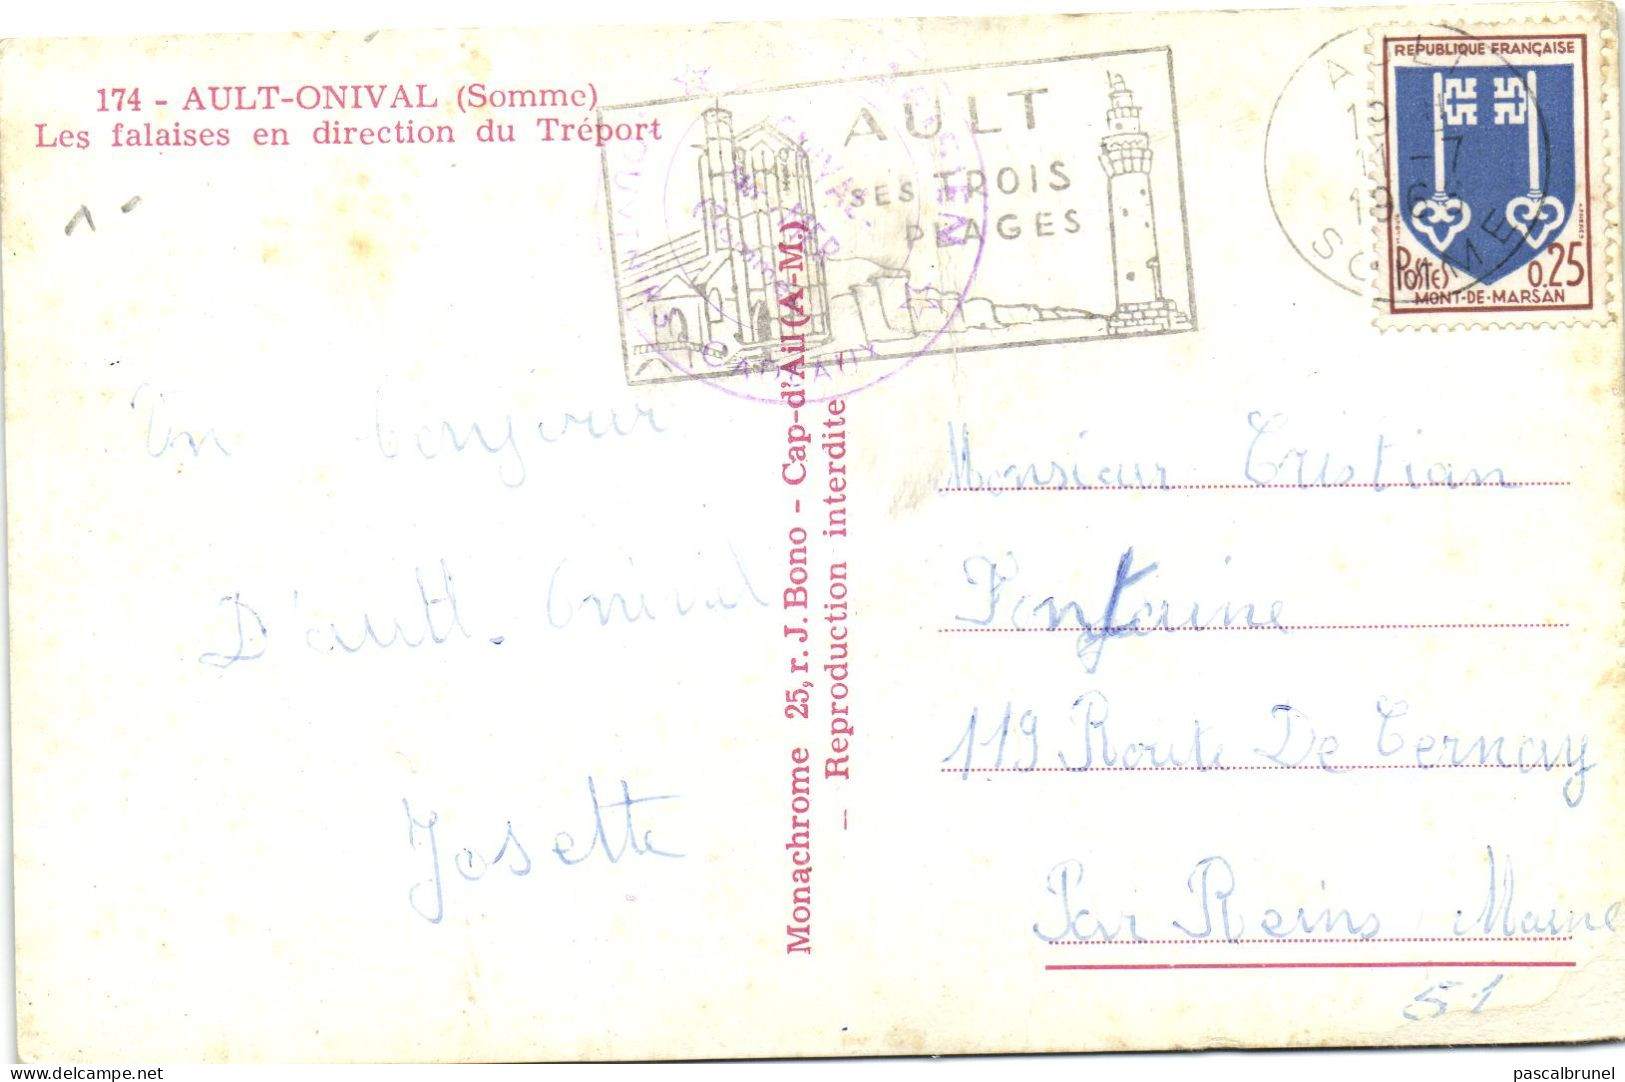 174 - AULT-ONIVAL (Somme)
Les falaises en direction du Tréport
AULT
SES TROIS
PLAGES
AULT
-7
SOMME
REPUBLIQUE FRANÇAISE
POSTES
0,25
MONT-DE-MARSAN
CADEAUX
Un bonjour
D'autt. Onival
Josette
Monachrome 25, r. J. Bono - Cap-d'Ail (A-M.)
— Reproduction interdite —
Monsieur Cristian
Fontaine
119 Route De Cernay
Par Reims Marne
51
delcampe.net
pascalbrunel